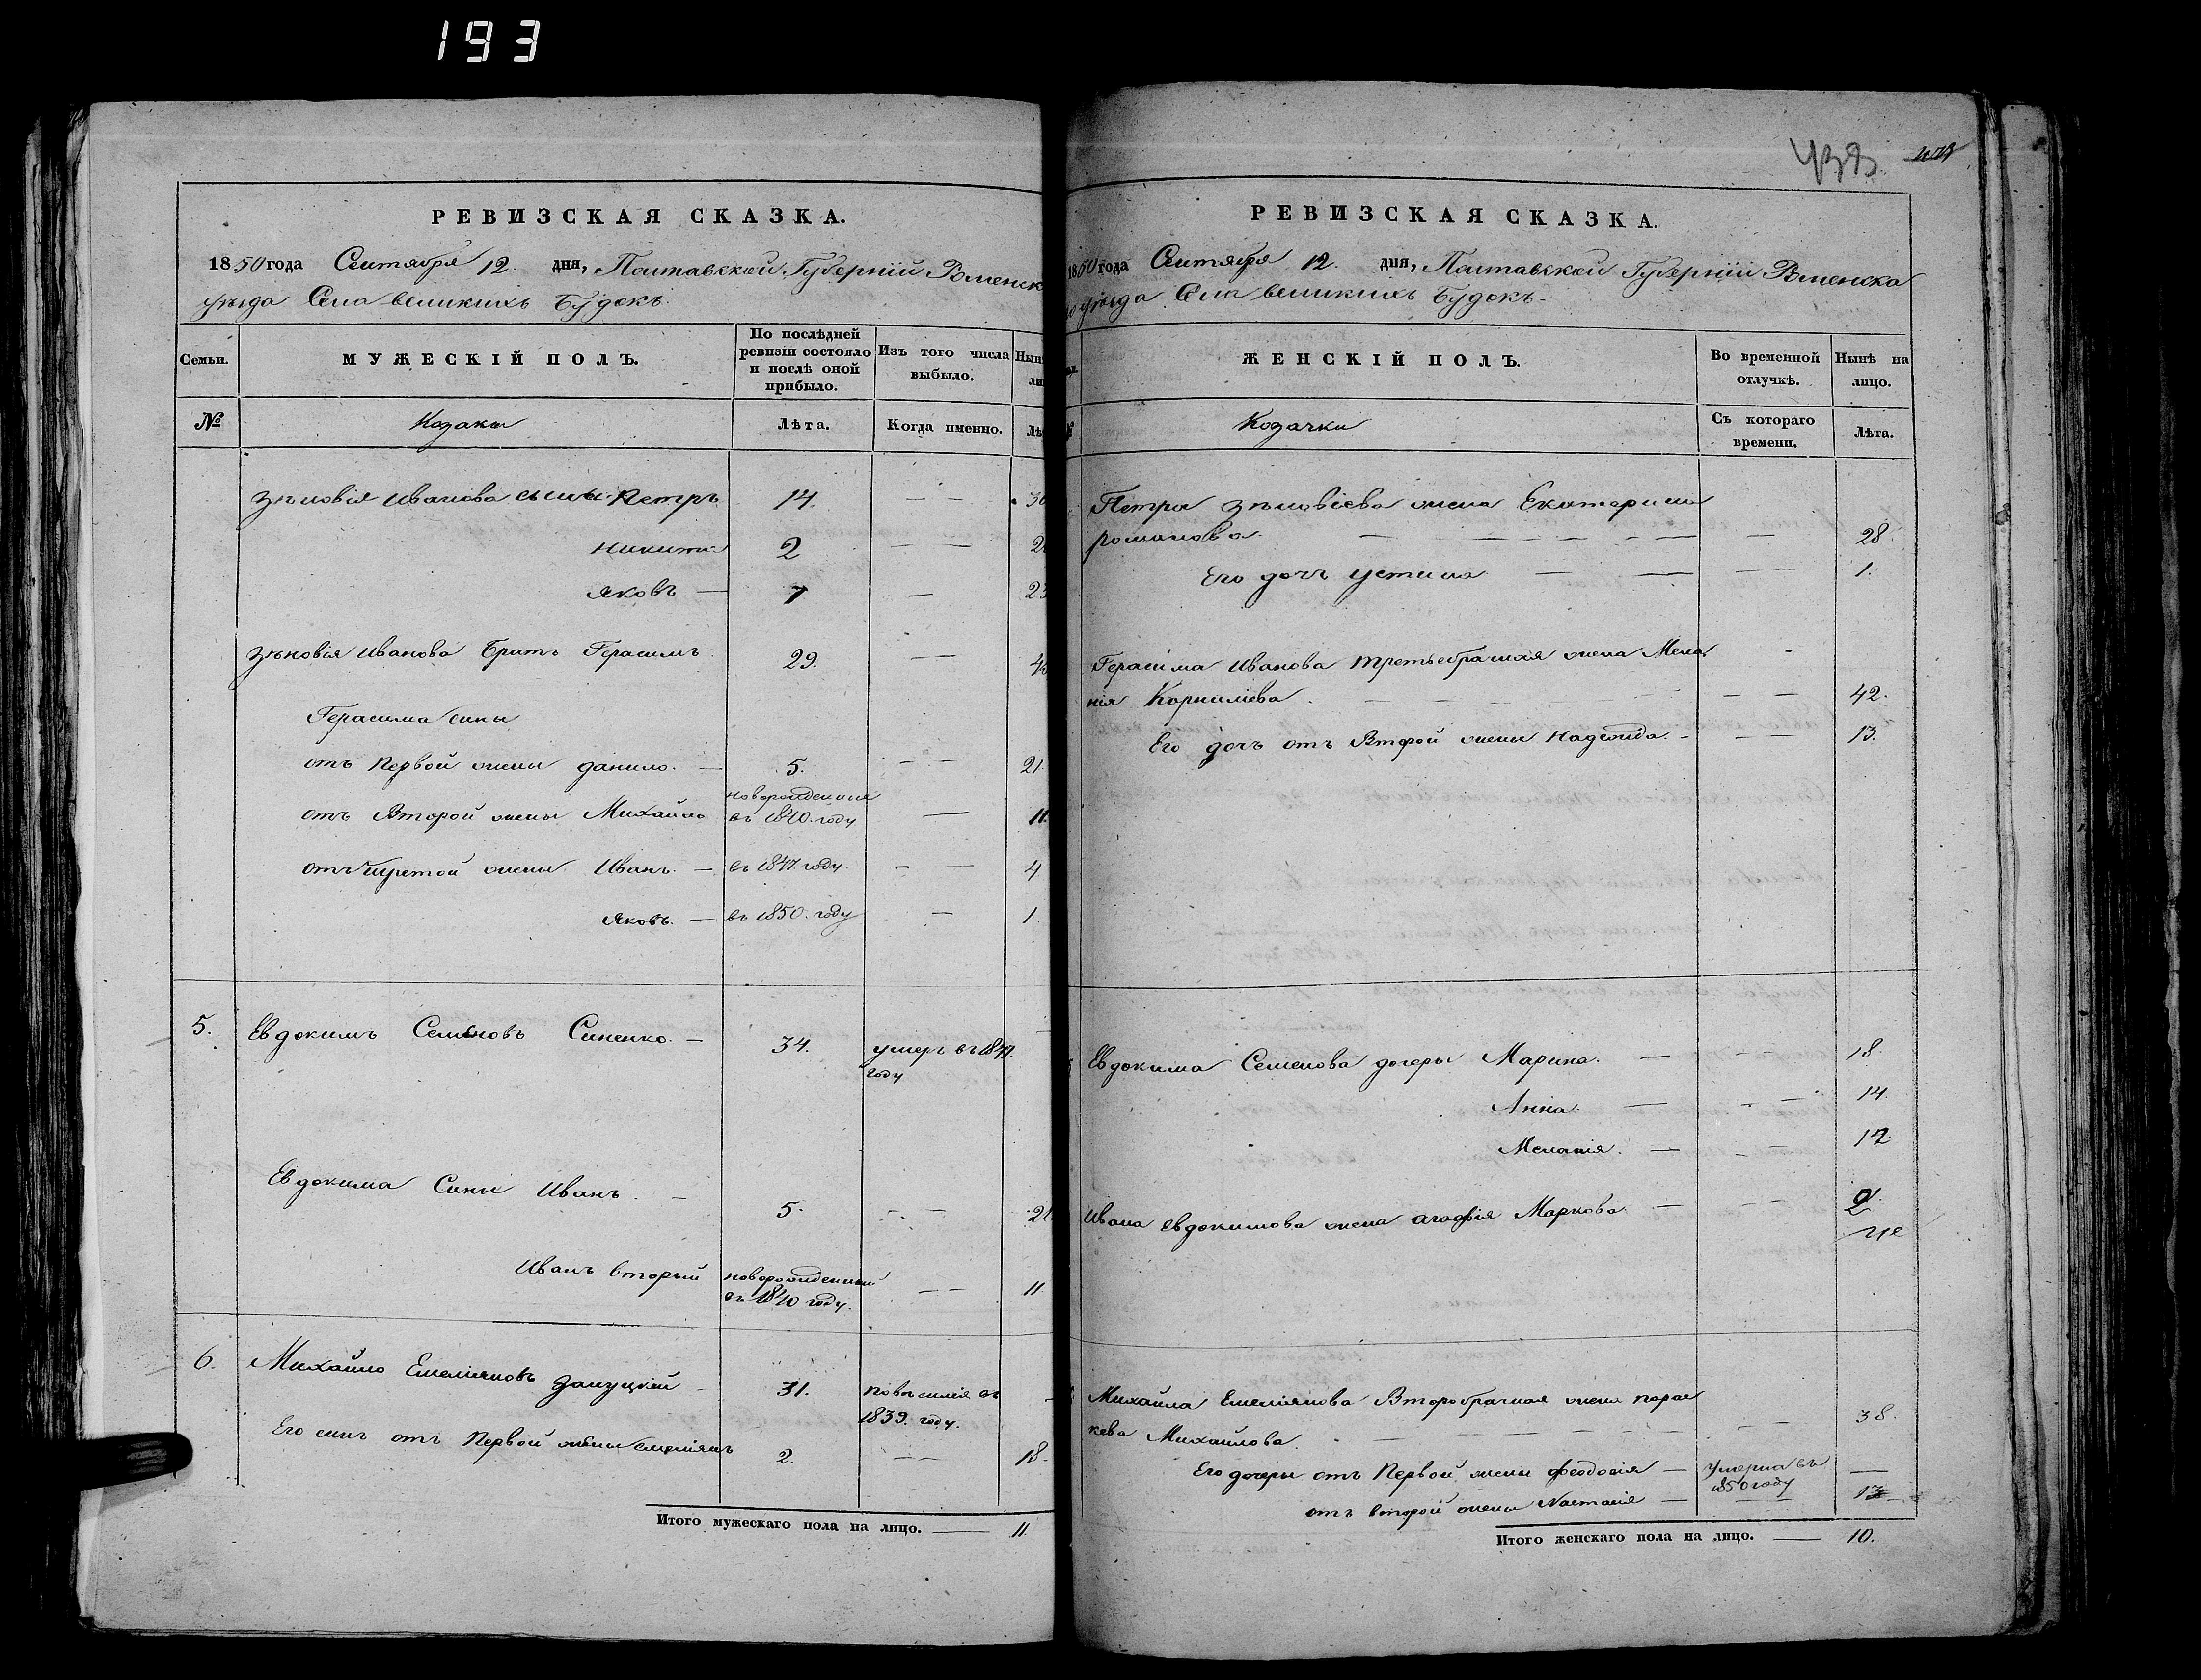 193
РЕВИЗСКАЯ СКАЗКА.
1850 года Сентября 12. дня, Полтавской Губерніи Роменск
уѣзда Села великихъ Будокъ.
Семьи.
МУЖЕСКІЙ ПОЛЪ.
По послѣдней
ревизіи состояло
и послѣ оной
прибыло.
Изъ того числа
выбыло.
№
Козаки
Лѣта.
Когда именно.
Зѣновія Иванова сыны Петръ 14. — —
Никита 2 — —
Яковъ — 7 —
Зѣновія Иванова Братъ Герасимъ 29. — —
Герасима сины
отъ Первой жены данило. — 5. — — 21.
новорожденный
отъ Второй жены Михайло въ 1840. году — 11.
отъ третой жены Иванъ. — въ 1847. году — — 4
Яковъ. — въ 1850. году — 1
5. Евдокимъ Семеновъ Синенко. — 34. умеръ въ 1847.
году
Евдокима Сины Иванъ. — 5. — — 21
Иванъ вторый новорожденный — — 11
въ 1840 году.
6. Михайло Емеліяновъ — 31.
1839. году.
Его синъ отъ Первой жены Емеліянъ 2. — — 18.
Итого мужескаго пола на лицо. — 11.
РЕВИЗСКАЯ СКАЗКА.
1850 года Сентября 12. дня, Полтавской Губерніи Роменска
го уѣзда Села великихъ Будокъ.
ЖЕНСКІЙ ПОЛЪ.
Во временной
отлучкѣ.
Нынѣ на
лицо.
Козачки
Съ котораго
времени.
Лѣта.
Петра Зѣновіева жена Екатерина
романова. — — — 28.
Его дочь Устина — — — — 1.
Герасима Иванова третьебрачная жена Мела
нія Корниліева. — — 42.
Его дочь отъ Второй жены Надежда. — — — 13.
Евдокима Семенова дочеры Марина. — — — 18.
Анна. — — — 14.
Меланія. — — — 12
Ивана Евдокимова жена агафія Маркова. — — —
Михайла Емеліянова Второбрачная жена пора
кева Михайлова. — — — 38.
Его дочеры отъ Первой жены феодосія — Умерла въ —
1850 году
отъ второй жены Настасія —
Итого женскаго пола на лицо. — 10.